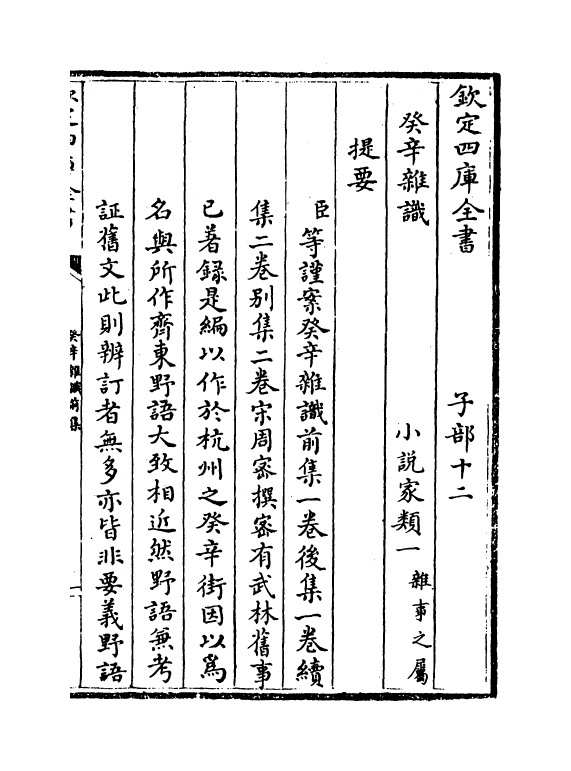 欽定四庫全書　子部十二
癸辛雜識　小說家類一　雜事之屬
提要
臣等謹案癸辛雜識前集一卷後集一卷續
集二卷别集二卷宋周密撰密有武林舊事
已著錄是編以作於杭州之癸辛街因以為
名與所作齊東野語大致相近然野語兼考
証舊文此則辨訂者無多亦皆非要義野語
癸辛雜識前集